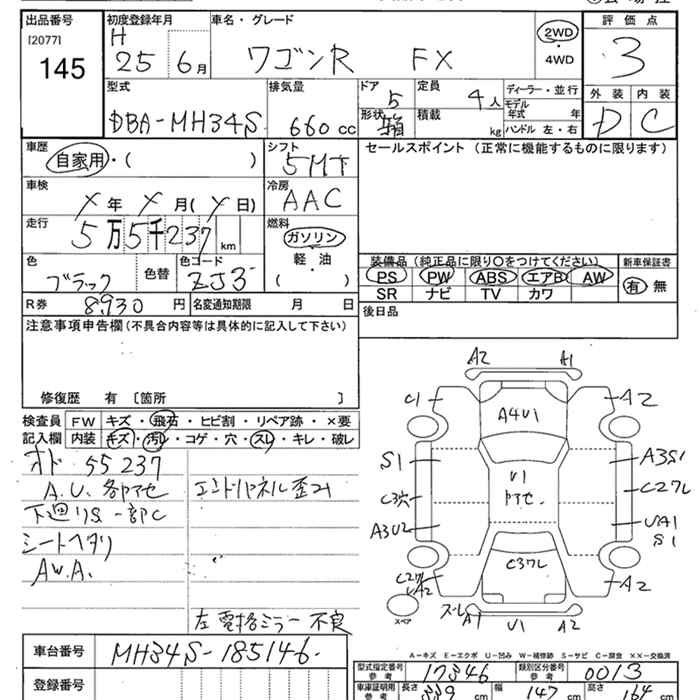 出品番号 初度登録年月 車名・グレード 評価点
[2077] H
145 25 6月 ワゴンR FX 2WD 4WD 3
型式 排気量 ドア 定員 ディーラー・並行 外装 内装
DBA-MH34S 660cc 5 4人 モデル年式 年 D C
形状 箱 積載 kg ハンドル 左・右
車歴 シフト セールスポイント (正常に機能するものに限ります)
自家用・( ) 5MT
車検 冷房
メ年 メ月(メ日) AAC
走行 燃料
5万5千237km ガソリン
軽・油
( )
色 色替 色コード 装備品(純正品に限り○をつけてください) 新車保証書
ブラック ZJ3 PS PW ABS エアB AW 有 無
SR ナビ TV カワ
R券 8,930円 名変通知期限 月 日 後日品
注意事項申告欄(不具合内容等は具体的に記入して下さい)
修復歴 有 [箇所 ]
検査員 FW キズ・飛石・ヒビ割・リペア跡・×要
記入欄 内装 キズ・汚レ・コゲ・穴・スレ・キレ・破レ
オド 55237
A.U.各部アセ エンドパネル歪み
下廻りS 一部C
シートヘタリ
AW.A.
左電格ミラー不良
A2 A1
C1 A4U1 A2
S1 U1 A3S1
C3穴 アセ. C27L
A3U2 UA1
S1
C37L
C27L A2
UA2
スペア ズレ A1 U1 A2
A-キズ E-エクボ U-凹み W-補修跡 S-サビ C-腐食 XX-交換済
車台番号 MH34S-185146
型式指定番号 参考 17346 類別区分番号 参考 0013
登録番号
車庫証明用 参考 長さ 339cm 幅 147cm 高さ 164cm